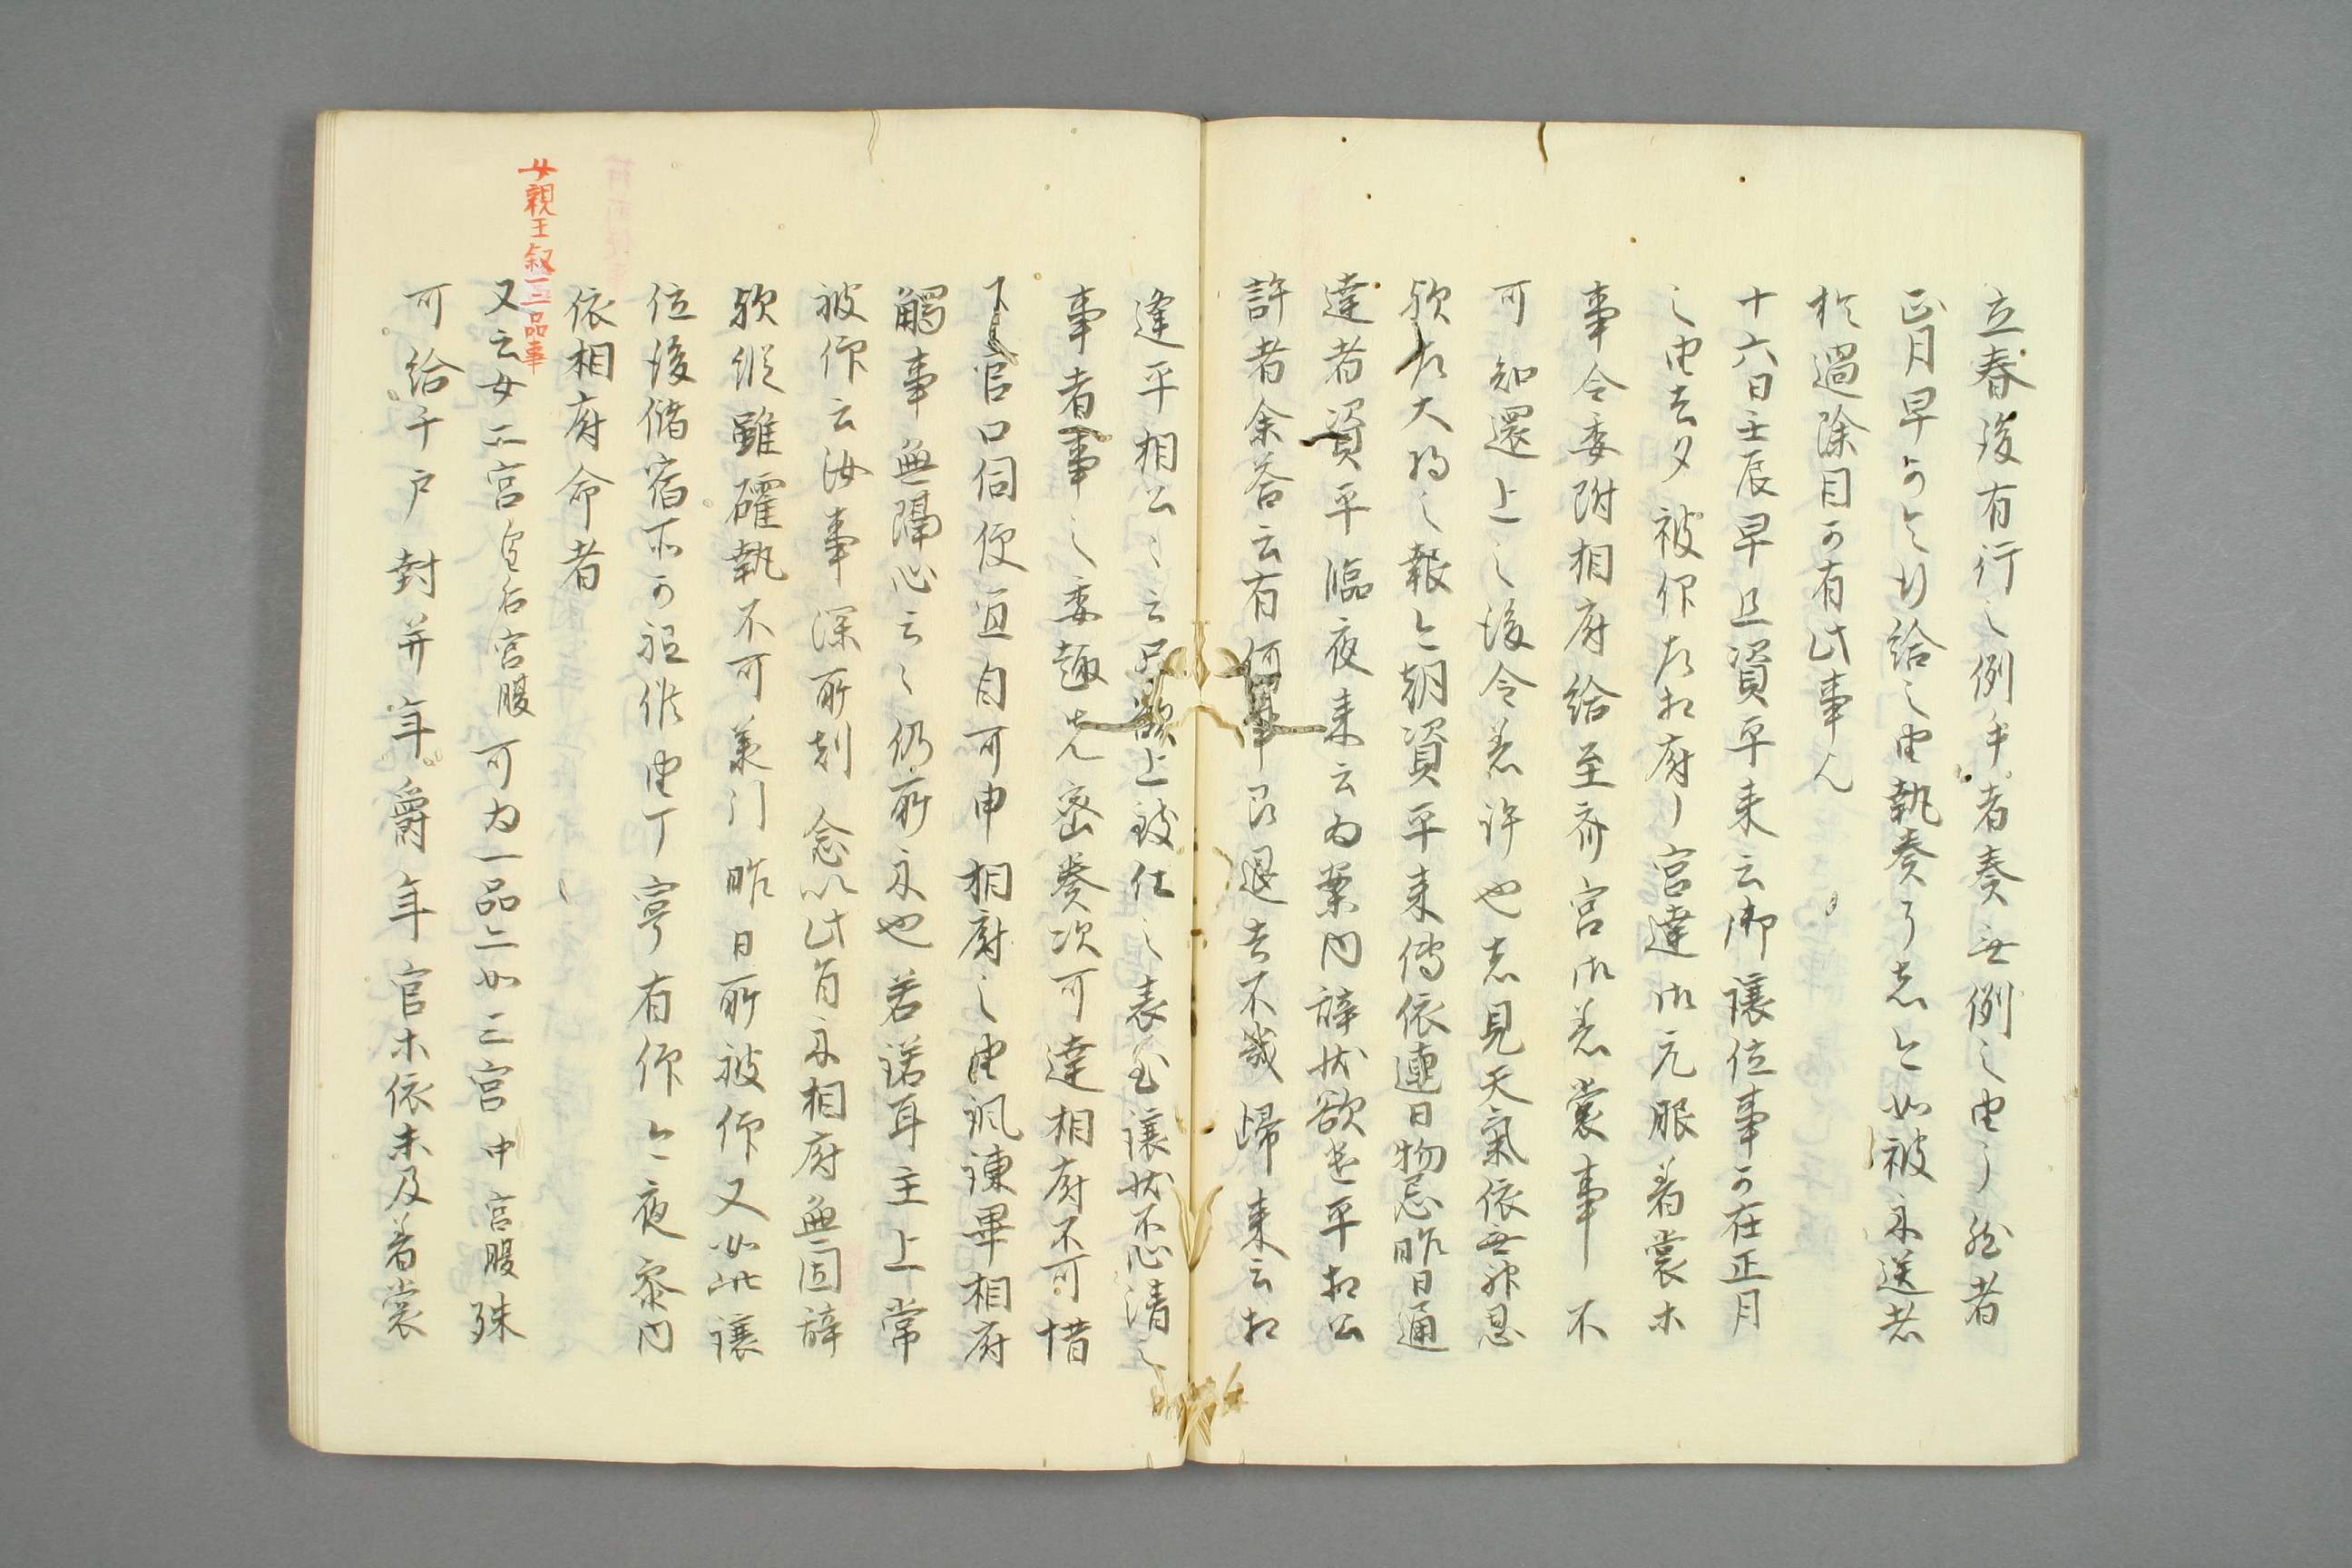 立春後有行之例乎者奏無例之由了然者
正月早可令行給之由執奏了者今如被示送者
於過除目可有此事欤
十六日壬辰早旦資平来云御譲位事可在正月
之由去夕被仰左相府了宮達御元服着裳等
事令委附相府給至斎宮御着裳事不
可知還上之後令着許也者見天気依無御息
欤左大将之報今朝資平来伝依連日物忌昨日通
達者資平臨夜来云為案内辞状欲逢平相公
許者余答云有何事已退去不幾帰来云相
逢平相公々云只欲上致仕之表至譲状不心清之
事者事之委趣先密奏次可達相府不可惜
下官口伺便宜自可申相府之由諷諫畢相府
觸事無隔心云々仍所示也若諾耳主上常
被仰云汝事深所刻念以此旨示相府無固辞
欤縦雖確執不可美門昨日所被仰又如此譲
位後儲宿所可祗候由丁寧有仰今夜参内
依相府命者
女親王叙一二品事
又云女二宮皇后宮腹可為一品二女三宮中宮腹殊
可給千戸封并年爵年官等依未及着裳